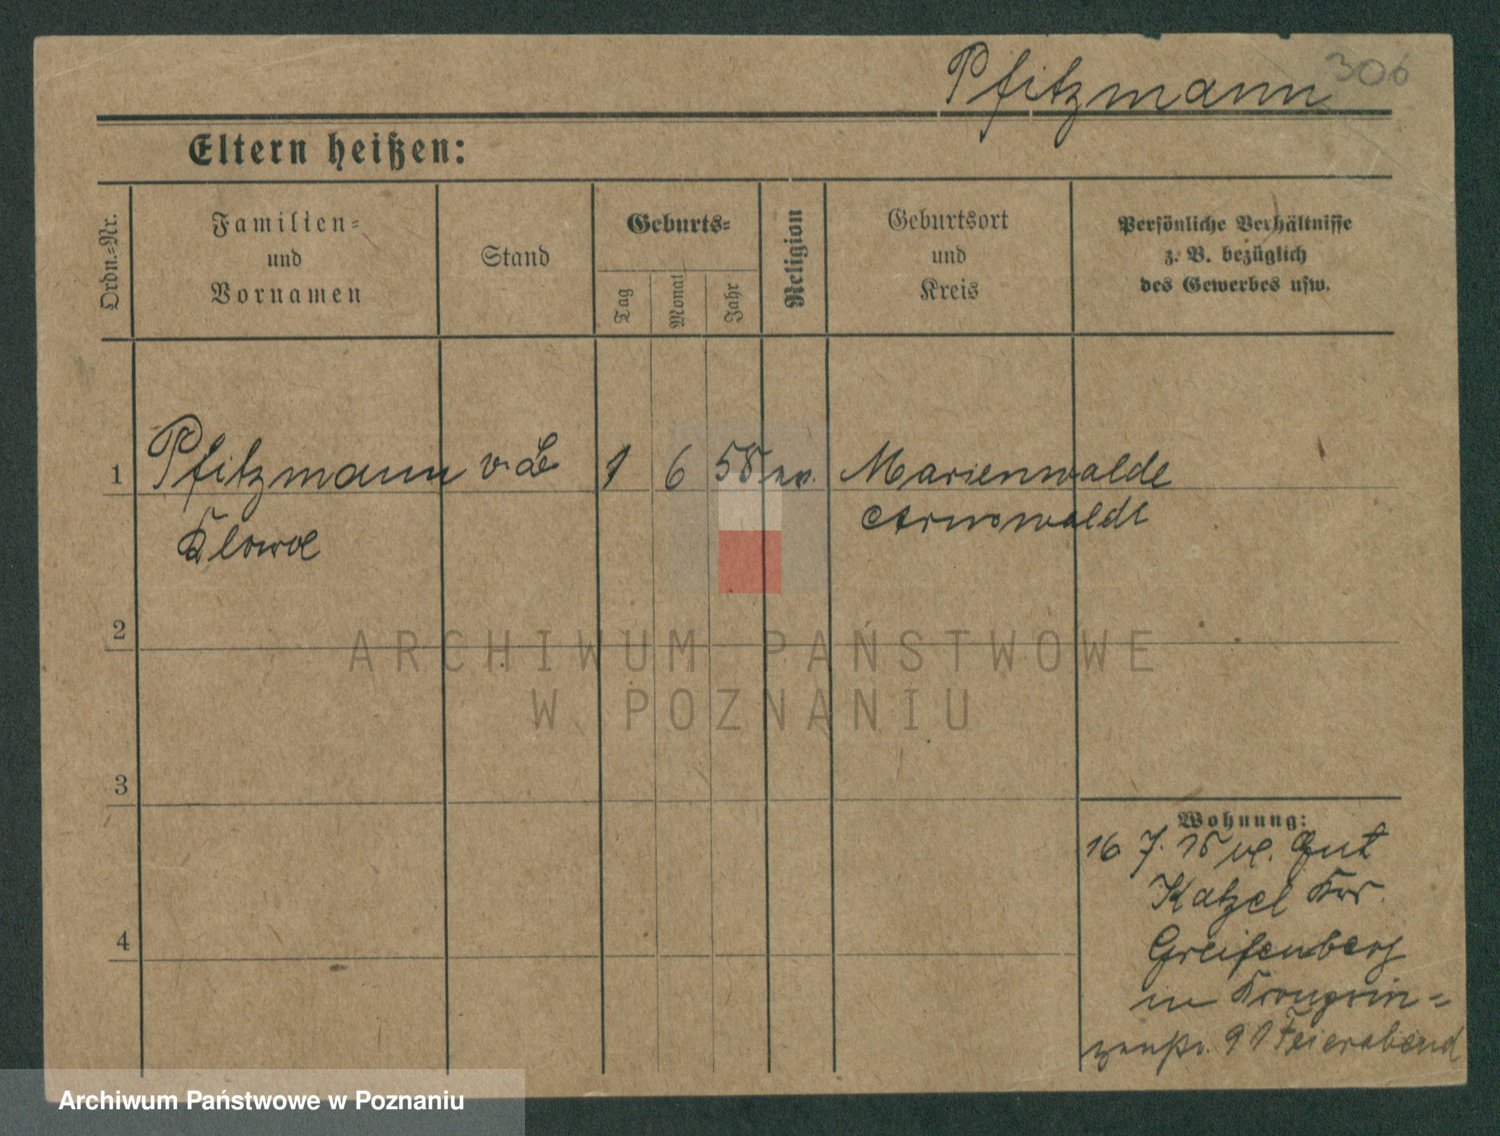 306
Pfitzmann
Eltern heißen:
Ordn.-Nr.
Familien-
und
Vornamen
Stand
Geburts-
Tag
Monat
Jahr
Religion
Geburtsort
und
Kreis
Persönliche Verhältnisse
z. B. bezüglich
des Gewerbes usw.
1 Pfitzmann 1 6 58 Marienwalde
Arnswalde
2
3
4
Wohnung:
16 7. 15 Gut
Katzel Kr.
Greifenberg
in Kronprin=
zenstr. 91 Feierabend
ARCHIWUM PAŃSTWOWE
W POZNANIU
Archiwum Państwowe w Poznaniu